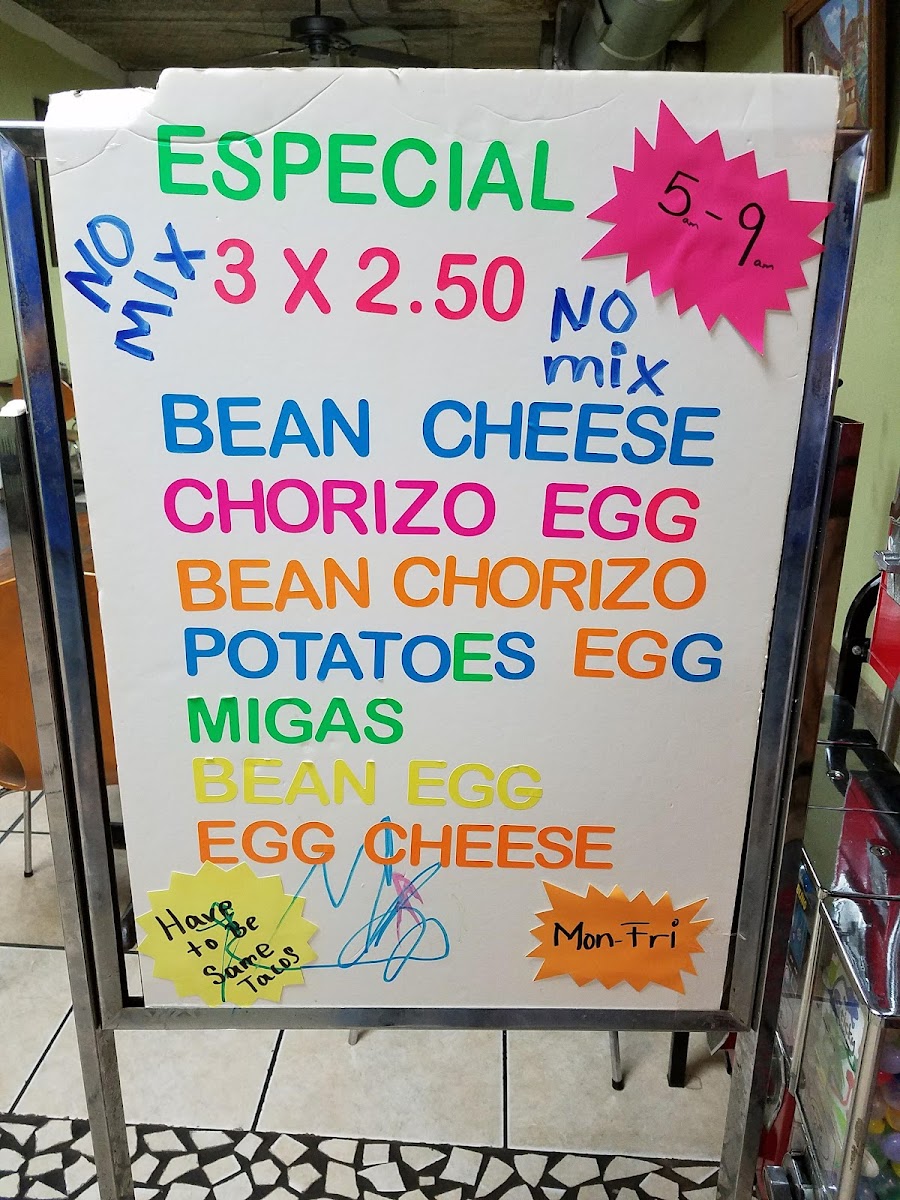 ESPECIAL
5am-9am
NO
MIX
3 X 2.50
NO
mix
BEAN CHEESE
CHORIZO EGG
BEAN CHORIZO
POTATOES EGG
MIGAS
BEAN EGG
EGG CHEESE
Have
to Be
Same
Tacos
Mon-Fri